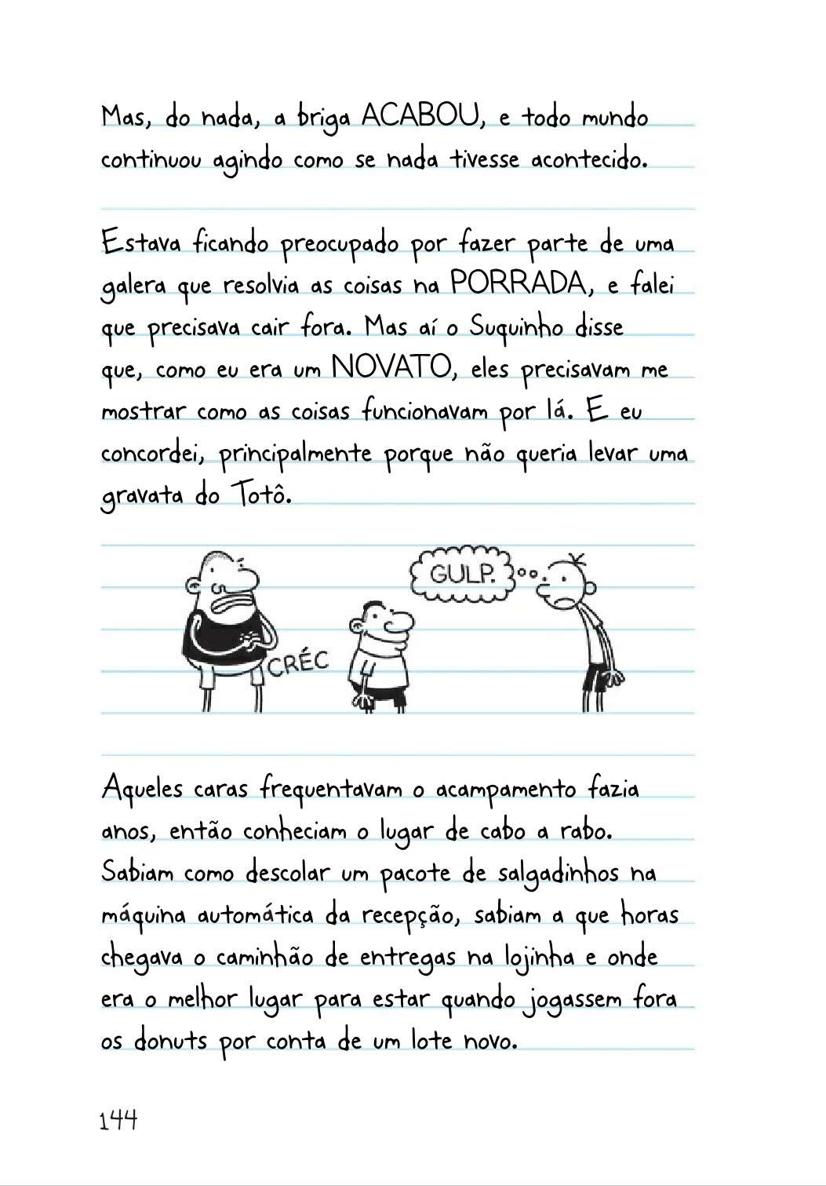 Mas, do nada, a briga ACABOU, e todo mundo
continuou agindo como se nada tivesse acontecido.
Estava ficando preocupado por fazer parte de uma
galera que resolvia as coisas na PORRADA, e falei
que precisava cair fora. Mas aí o Suquinho disse
que, como eu era um NOVATO, eles precisavam me
mostrar como as coisas funcionavam por lá. E eu
concordei, principalmente porque não queria levar uma
gravata do Totô.
GULP.
CRÉC
Aqueles caras frequentavam o acampamento fazia
anos, então conheciam o lugar de cabo a rabo.
Sabiam como descolar um pacote de salgadinhos na
máquina automática da recepção, sabiam a que horas
chegava o caminhão de entregas na lojinha e onde
era o melhor lugar para estar quando jogassem fora
os donuts por conta de um lote novo.
144